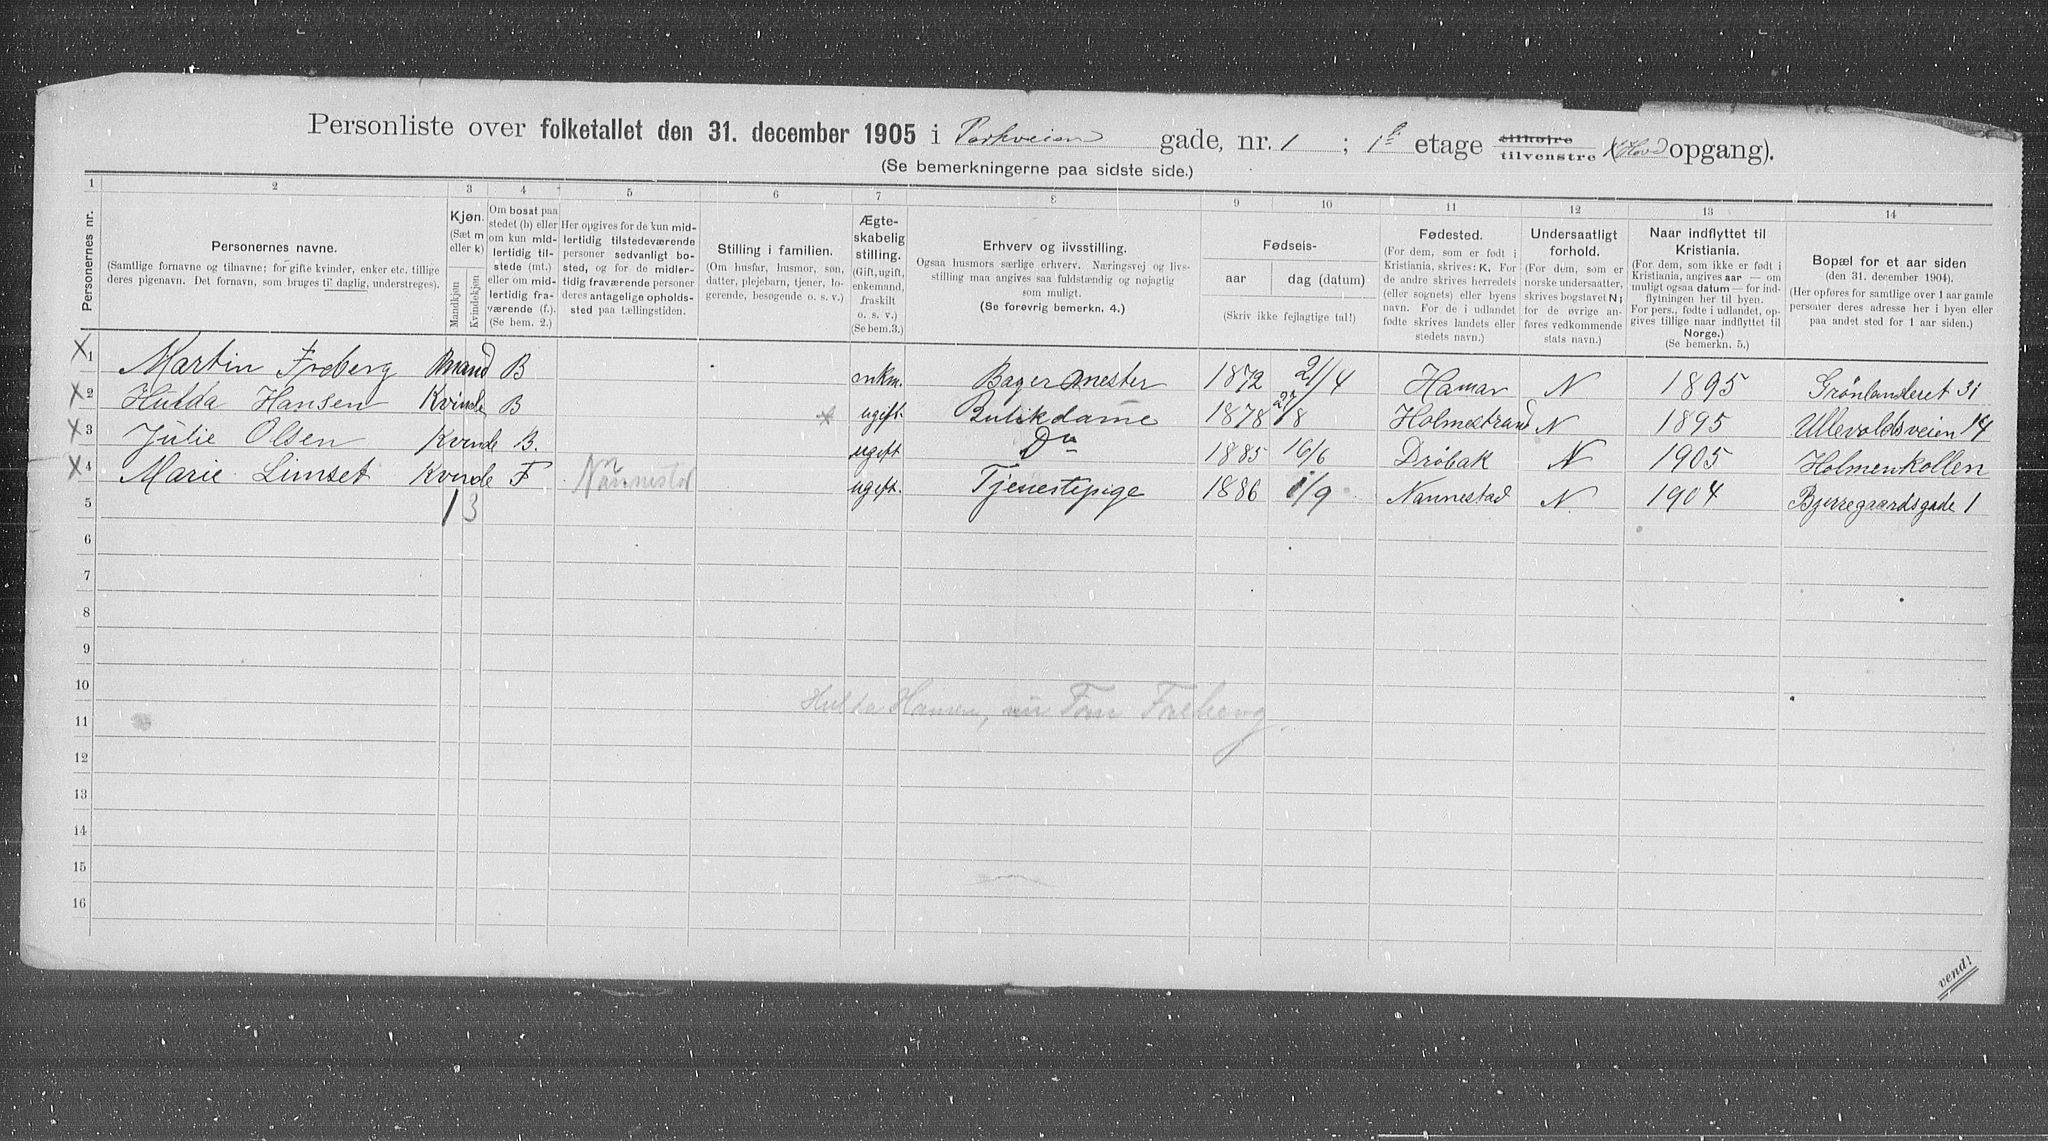 Personliste over folketallet den 31. december 1905 i Parkveien gade, nr. 1 ; 1ste etage tilhøjre tilvenstre opgang).
(Se bemerkningerne paa sidste side.)
1 2 3 4 5 6 7 8 9 10 11 12 13 14
Personernes nr.
Personernes navne.
(Samtlige fornavne og tilnavne; for gifte kvinder, enker etc. tillige deres pigenavn. Det fornavn, som bruges til daglig, understreges).
Kjøn.
(Sæt m eller k)
Mandkjøn
Kvindekjøn
Om bosat paa stedet (b) eller om kun midlertidig tilstede (mt.) eller om midlertidig fraværende (f.).
(Se bem. 2.)
Her opgives for de kun midlertidig tilstedeværende personer sedvanligt bosted, og for de midlertidig fraværende personer deres antagelige opholdssted paa tællingstiden.
Stilling i familien.
(Om husfar, husmor, søn, datter, plejebarn, tjener, logerende, besøgende o. s. v.)
Ægteskabelig stilling.
(Gift, ugift, enkemand, fraskilt o. s. v.)
(Se bem. 3.)
Erhverv og livsstilling.
Ogsaa husmors særlige erhverv. Næringsvej og livsstilling maa angives saa fuldstændig og nøjagtig som muligt.
(Se forøvrig bemerkn. 4.)
Fødsels-
aar
dag (datum)
(Skriv ikke fejlagtige tal!)
Fødested.
(For dem, som er født i Kristiania, skrives: K. For de andre skrives herredets (eller sognets) eller byens navn. For de i udlandet fødte skrives landets eller stedets navn.)
Undersaatligt forhold.
(For dem, som er norske undersaatter, skrives bogstavet N; for de øvrige anføres vedkommende stats navn.)
Naar indflyttet til Kristiania.
(For dem, som ikke er født i Kristiania, angives aar — om muligt ogsaa datum — for indflytningen her til byen. For pers., fødte i udlandet, opgives tillige naar indflyttet til Norge.)
(Se bemerkn. 5.)
Bopæl for et aar siden
(den 31. december 1904).
(Her opføres for samtlige over 1 aar gamle personer deres adresse her i byen eller paa andet sted for 1 aar siden.)
X 1 Martin Froberg Mand B enkm. Bager mester 1872 21/4 Hamar N 1895 Grønlandleret 31
X 2 Hulda Hansen Kvinde B ugift. Butikdame 1878 27/8 Holmestrand N 1895 Ullevoldsveien 14
X 3 Julie Olsen Kvinde B. ugift Do 1885 16/6 Drøbak N 1905 Holmenkollen
X 4 Marie Limset Kvinde F Nannestad ugift. Tjenestepige 1886 1/9 Nannestad N 1904 Bjerregaardsgade 1
5 1 3
6
7
8
9
10
Hulda Hansen, nu
11
12
13
14
15
16
vend!